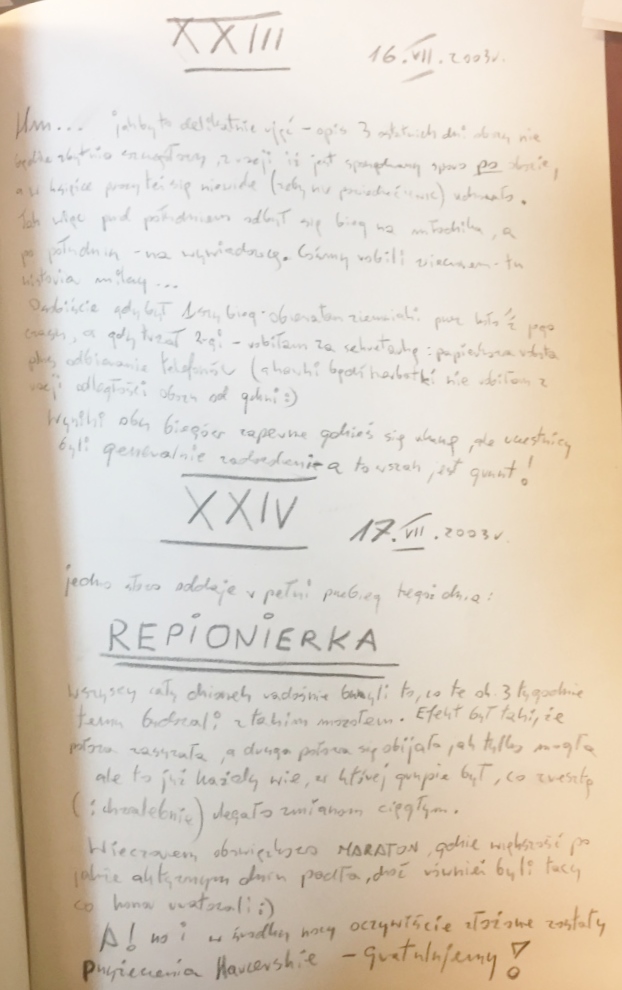 XXIII 16.VII.2003r.
Hm... jakby to delikatnie ująć - opis 3 ostatnich dni obozu nie
będzie zbytnio szczegółowy, z racji iż jest sporządzany sporo po obozie,
a w książce pracy też się niewiele (żeby nie powiedzieć nic)
Tak więc przed południem odbył się bieg na młodzika, a
po południu - na wywiadowcę. Czarny robili wieczorem - tu
historia milczy...
Osobiście gdy był 1szy bieg - obierałam ziemniaki przez bite ½ jego
czasu, a gdy trwał 2-gi - robiłam za sekretarkę: papierkowa robota
plus odbieranie telefonów (a kawki bądź herbatki nie robiłam z
racji odległości obozu od kuchni :)
Wyniki obu biegów zapewne gdzieś się ukażą, ale uczestnicy
byli generalnie zadowoleni - a to wszak jest grunt!
XXIV 17.VII.2003r.
jedno słowo oddaje w pełni przebieg tegoż dnia:
REPIONIERKA
Wszyscy cały dzionek radośnie burzyli to, co te ok. 3 tygodnie
temu budowali z takim mozołem. Efekt był taki, że
połowa zasuwała, a druga połowa się obijała jak tylko mogła
ale to już każdy wie, w której grupie był, co zresztą
(i chwalebnie) ulegało zmianom ciągłym.
Wieczorem obowiązkowo MARATON, gdzie większość po
jakże aktywnym dniu padła, choć również byli tacy
co honor uratowali :)
A! no i w środku nocy oczywiście złożone zostały
Przyrzeczenia Harcerskie - Gratulujemy!